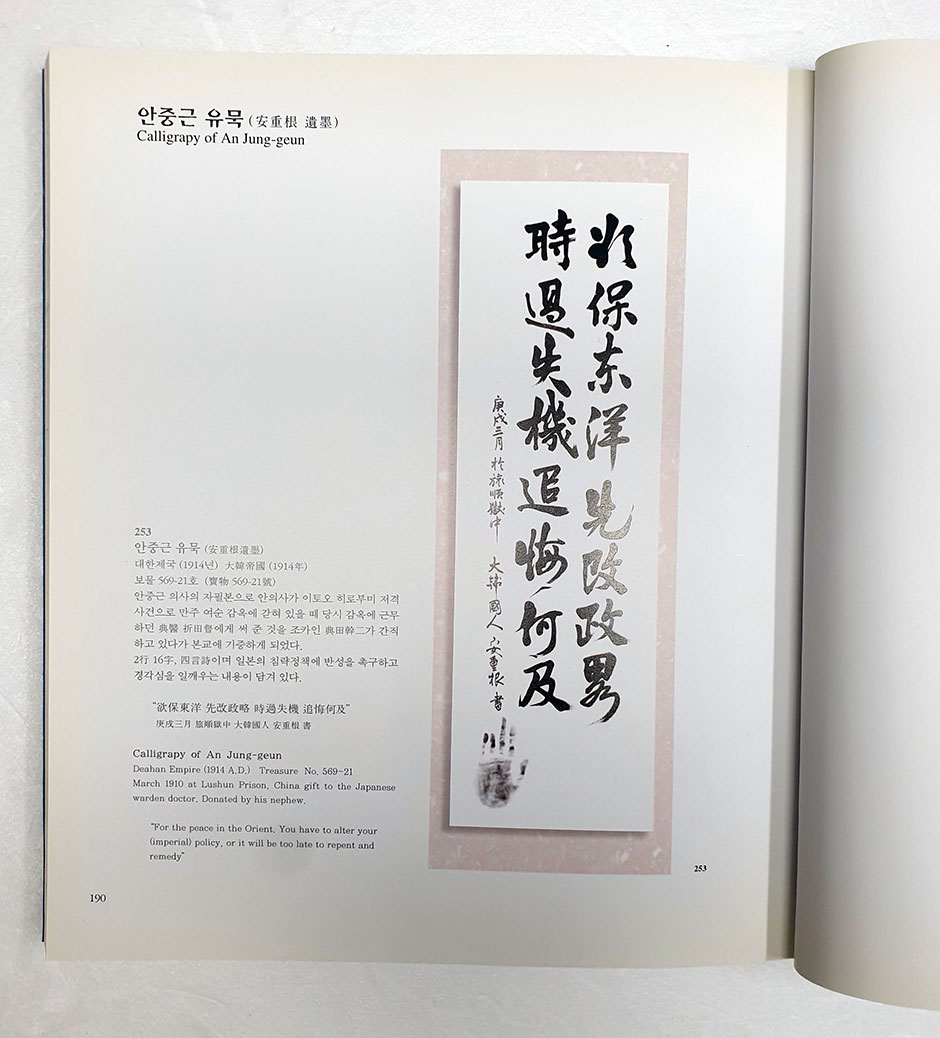 안중근 유묵 (安重根 遺墨)
Calligrapy of An Jung-geun
時過失機追悔何及
欲保东洋先改政畧
庚戌三月 於旅順獄中 大韓國人 安重根 書
253
안중근 유묵 (安重根遺墨)
대한제국 (1914년) 大韓帝國 (1914年)
보물 569-21호 (寶物 569-21號)
안중근 의사의 자필본으로 안의사가 이토오 히로부미 저격
사건으로 만주 여순 감옥에 갇혀 있을 때 당시 감옥에 근무
하던 典醫 折田督에게 써 준 것을 조카인 典田幹二가 간직
하고 있다가 본교에 기증하게 되었다.
2行 16字, 四言詩이며 일본의 침략정책에 반성을 촉구하고
경각심을 일깨우는 내용이 담겨 있다.
"欲保東洋 先改政略 時過失機 追悔何及"
庚戌三月 旅順獄中 大韓國人 安重根 書
Calligrapy of An Jung-geun
Deahan Empire (1914 A.D.) Treasure No. 569-21
March 1910 at Lushun Prison, China gift to the Japanese
warden doctor. Donated by his nephew.
"For the peace in the Orient, You have to alter your
(imperial) policy, or it will be too late to repent and
remedy"
253
190